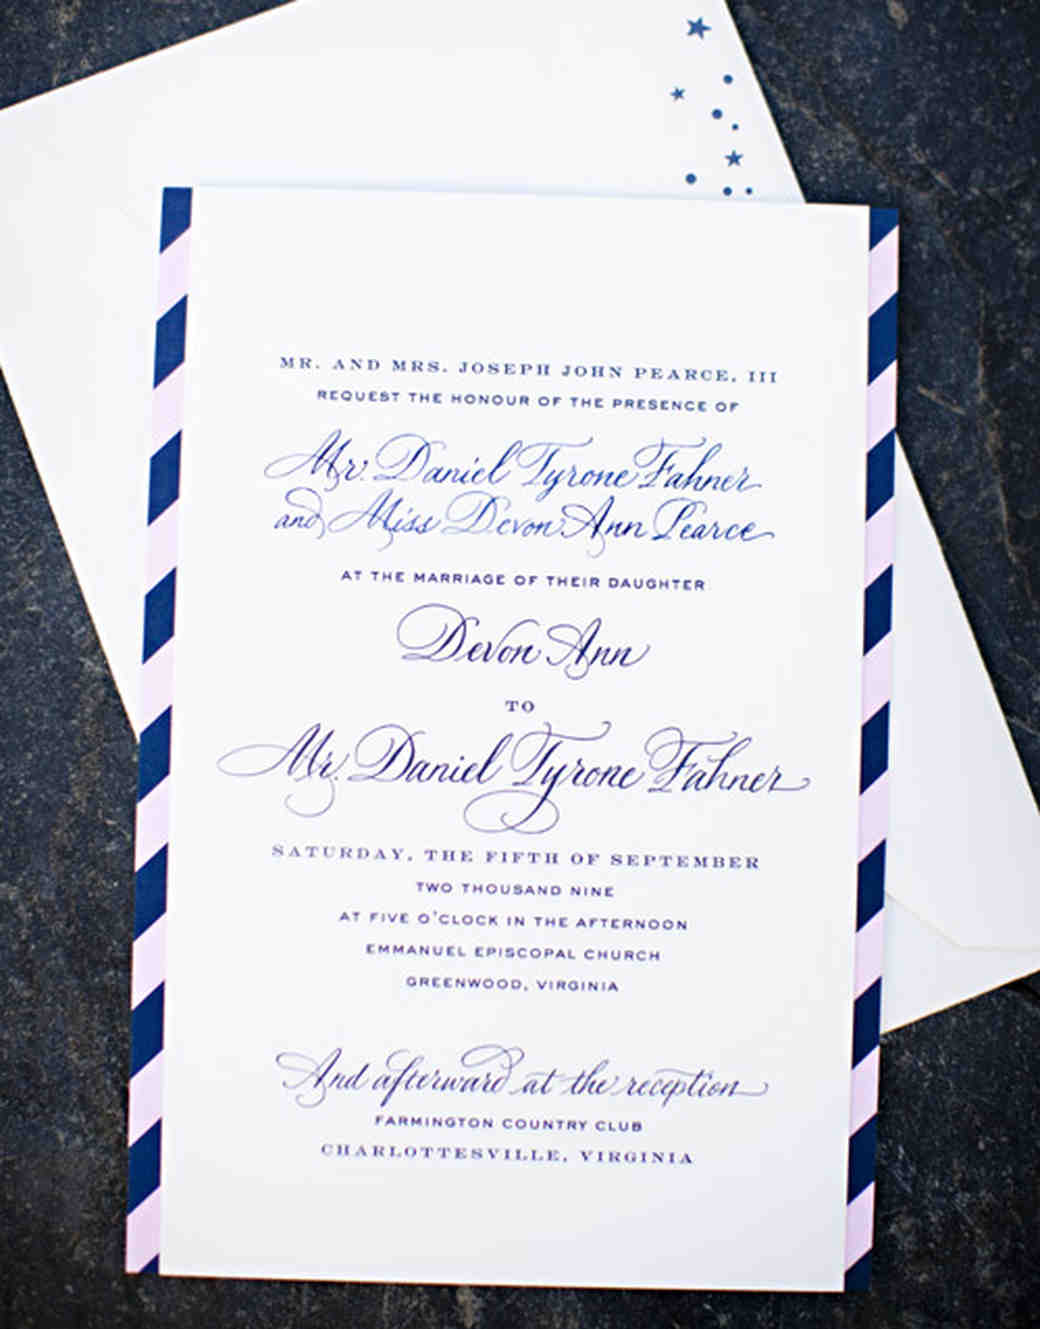 MR. AND MRS. JOSEPH JOHN PEARCE, III
REQUEST THE HONOUR OF THE PRESENCE OF
Mr. Daniel Tyrone Fahner
and Miss Devon Ann Pearce
AT THE MARRIAGE OF THEIR DAUGHTER
Devon Ann
TO
Mr. Daniel Tyrone Fahner
SATURDAY, THE FIFTH OF SEPTEMBER
TWO THOUSAND NINE
AT FIVE O'CLOCK IN THE AFTERNOON
EMMANUEL EPISCOPAL CHURCH
GREENWOOD, VIRGINIA
And afterward at the reception
FARMINGTON COUNTRY CLUB
CHARLOTTESVILLE, VIRGINIA